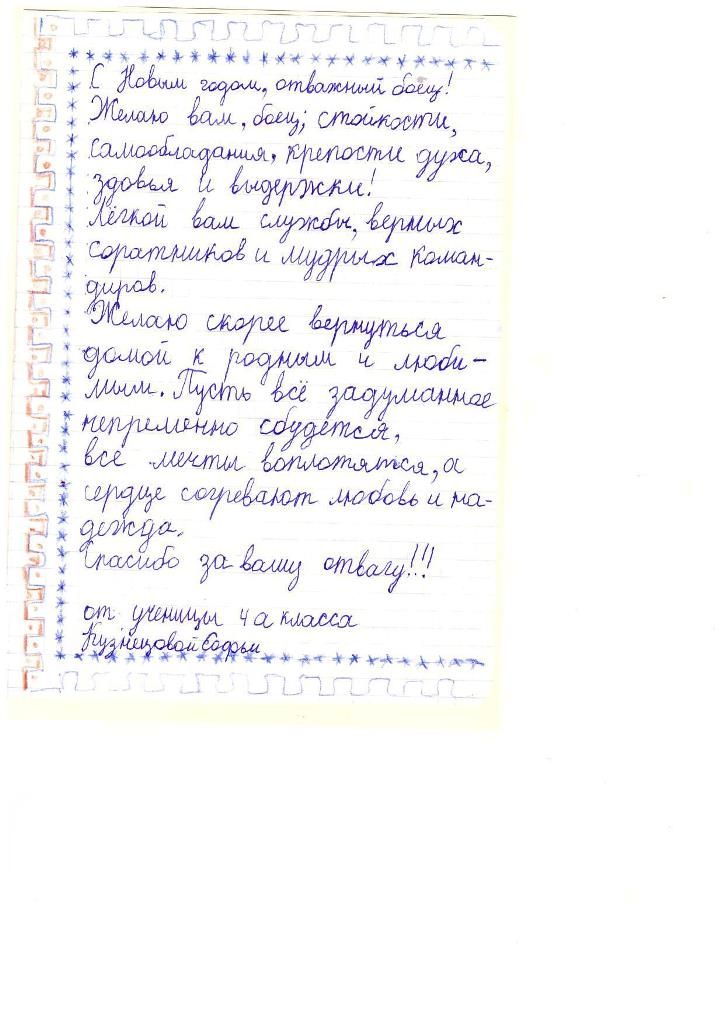 С Новым годом, отважный боец!
Желаю вам, боец, стойкости,
самообладания, крепости духа,
здовья и выдержки!
Лёгкой вам службы, верных
соратников и мудрых коман-
диров.
Желаю скорее вернуться
домой к родным и люби-
мым. Пусть всё задуманное
непременно сбудется,
все мечты воплотятся, а
сердце согревают любовь и на-
дежда.
Спасибо за вашу отвагу!!!
от ученицы 4 а класса
Кузнецовой Софьи